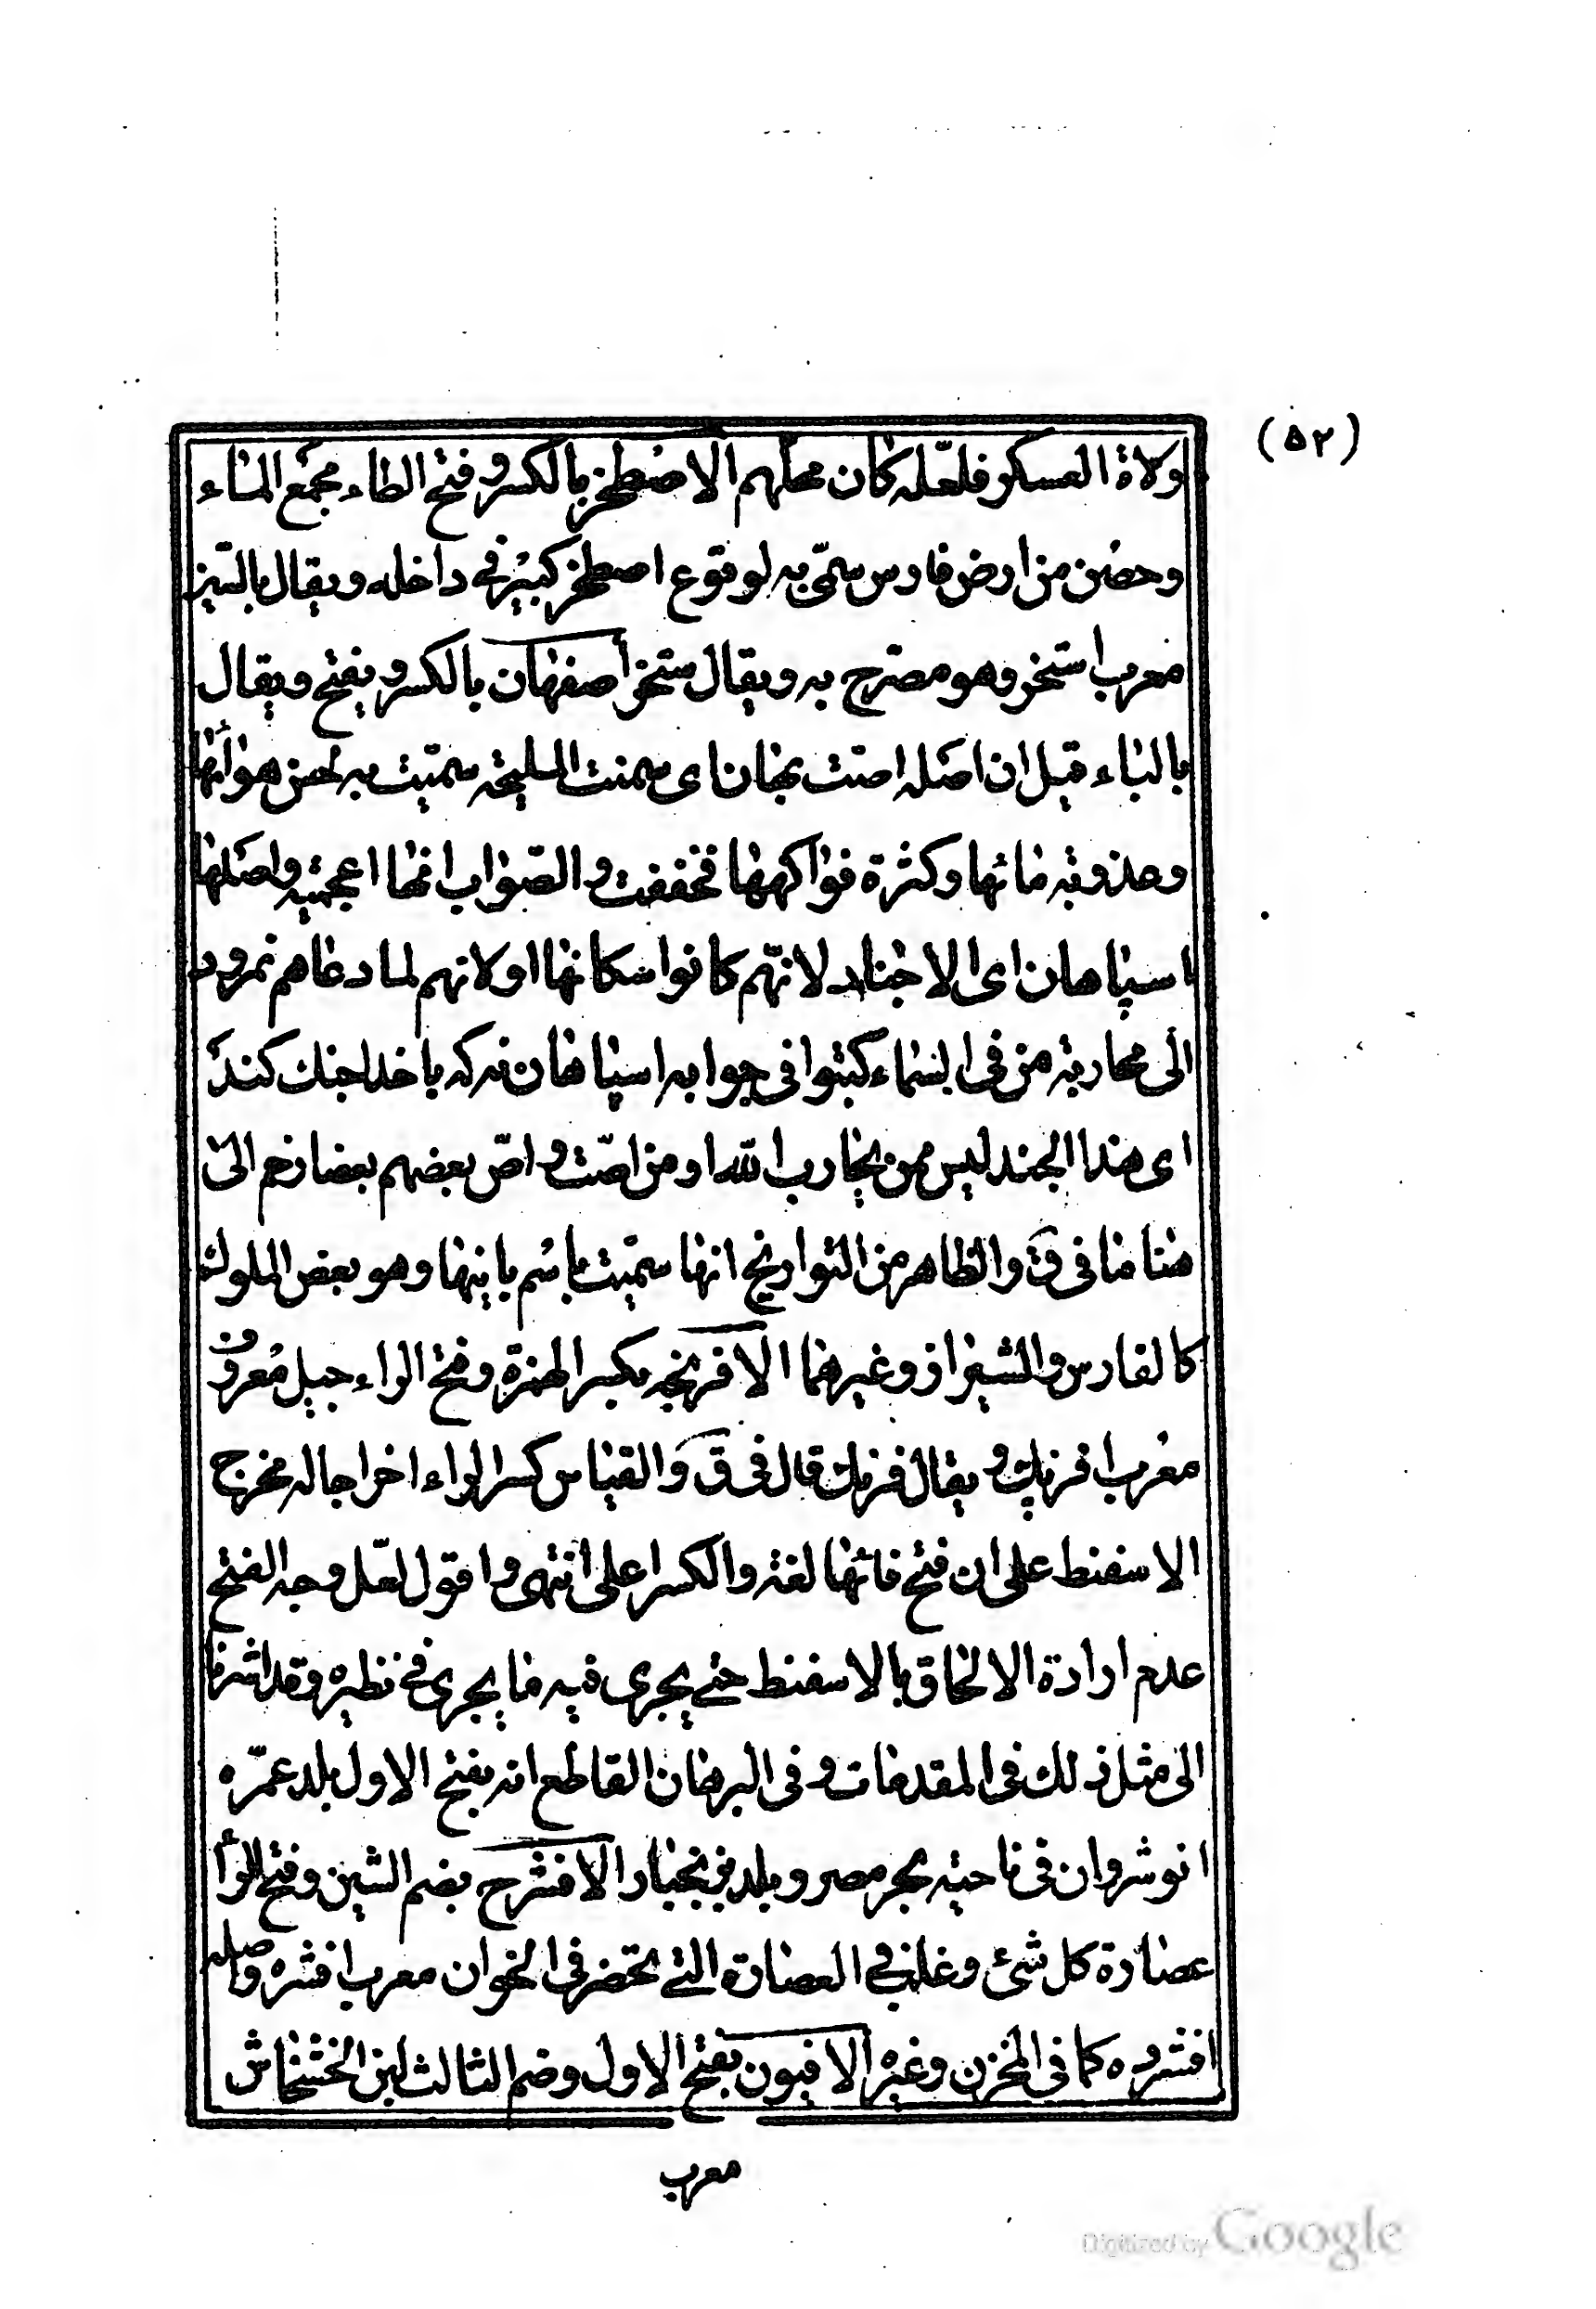 (۵۲)
ولاة العسكر فلعله كان محلهم الاصطخر بالكسر وفتح الطاء مجمع الماء
وحصن من ارض فارس سمّى به لوقوع اصطخر كبير فى داخله ويقال بالسين
معرب استخر وهو مصرح به ويقال ستخر أصفهان بالكسر ويفتح ويقال
بالباء قيل ان اصله اصت بهان اى سمنت المليحة سميت به لحسن هوائها
وعذوبة مائها وكثرة فواكهها فخففت والصواب انها اعجمية واصلها
اسپاهان اى الاجناد لانهم كانوا سكانها او لانهم لما دعاهم نمرود
الى محاربة من فى السماء كتبوا فى جوابه اسپاهان نه كه با خدا جنك كند
اى هذا الجند ليس ممن يحارب الله او من اصّت واصّ بعضهم بعضا زحم الى
هنا ما فى ق والظاهر من التواريخ انها سميت باسم بانيها وهو بعض الملوك
كالفارس والشيراز وغيرهما الافرنجه بكسر الهمزة وفتح الراء جيل معروف
معرب افرنك ويقال فرنك قال فى ق والقياس كسر الراء اخراجا له مخرج
الاسفنط على ان فتح فائها لغة والكسر اعلى انتهى واقول لعل وجه الفتح
عدم ارادة الالحاق بالاسفنط حتى يجرى فيه ما يجرى فى نظيره وقد اشرنا
الى مثل ذلك فى المقدمات وفى البرهان القاطع انه بفتح الاول بلد عمّره
انوشروان فى ناحية بحر مصر وبلد فى نجبار الافشرج بضم الشين وفتح الرأ
عصارة كل شئ وغلب فى العصارة التى تحضر فى الخوان معرب افشره واصله
افشرده كما فى المخزن وغيره الافيون بفتح الاول وضم الثالث لبن الخشخاش
معرب
Digitized by Google